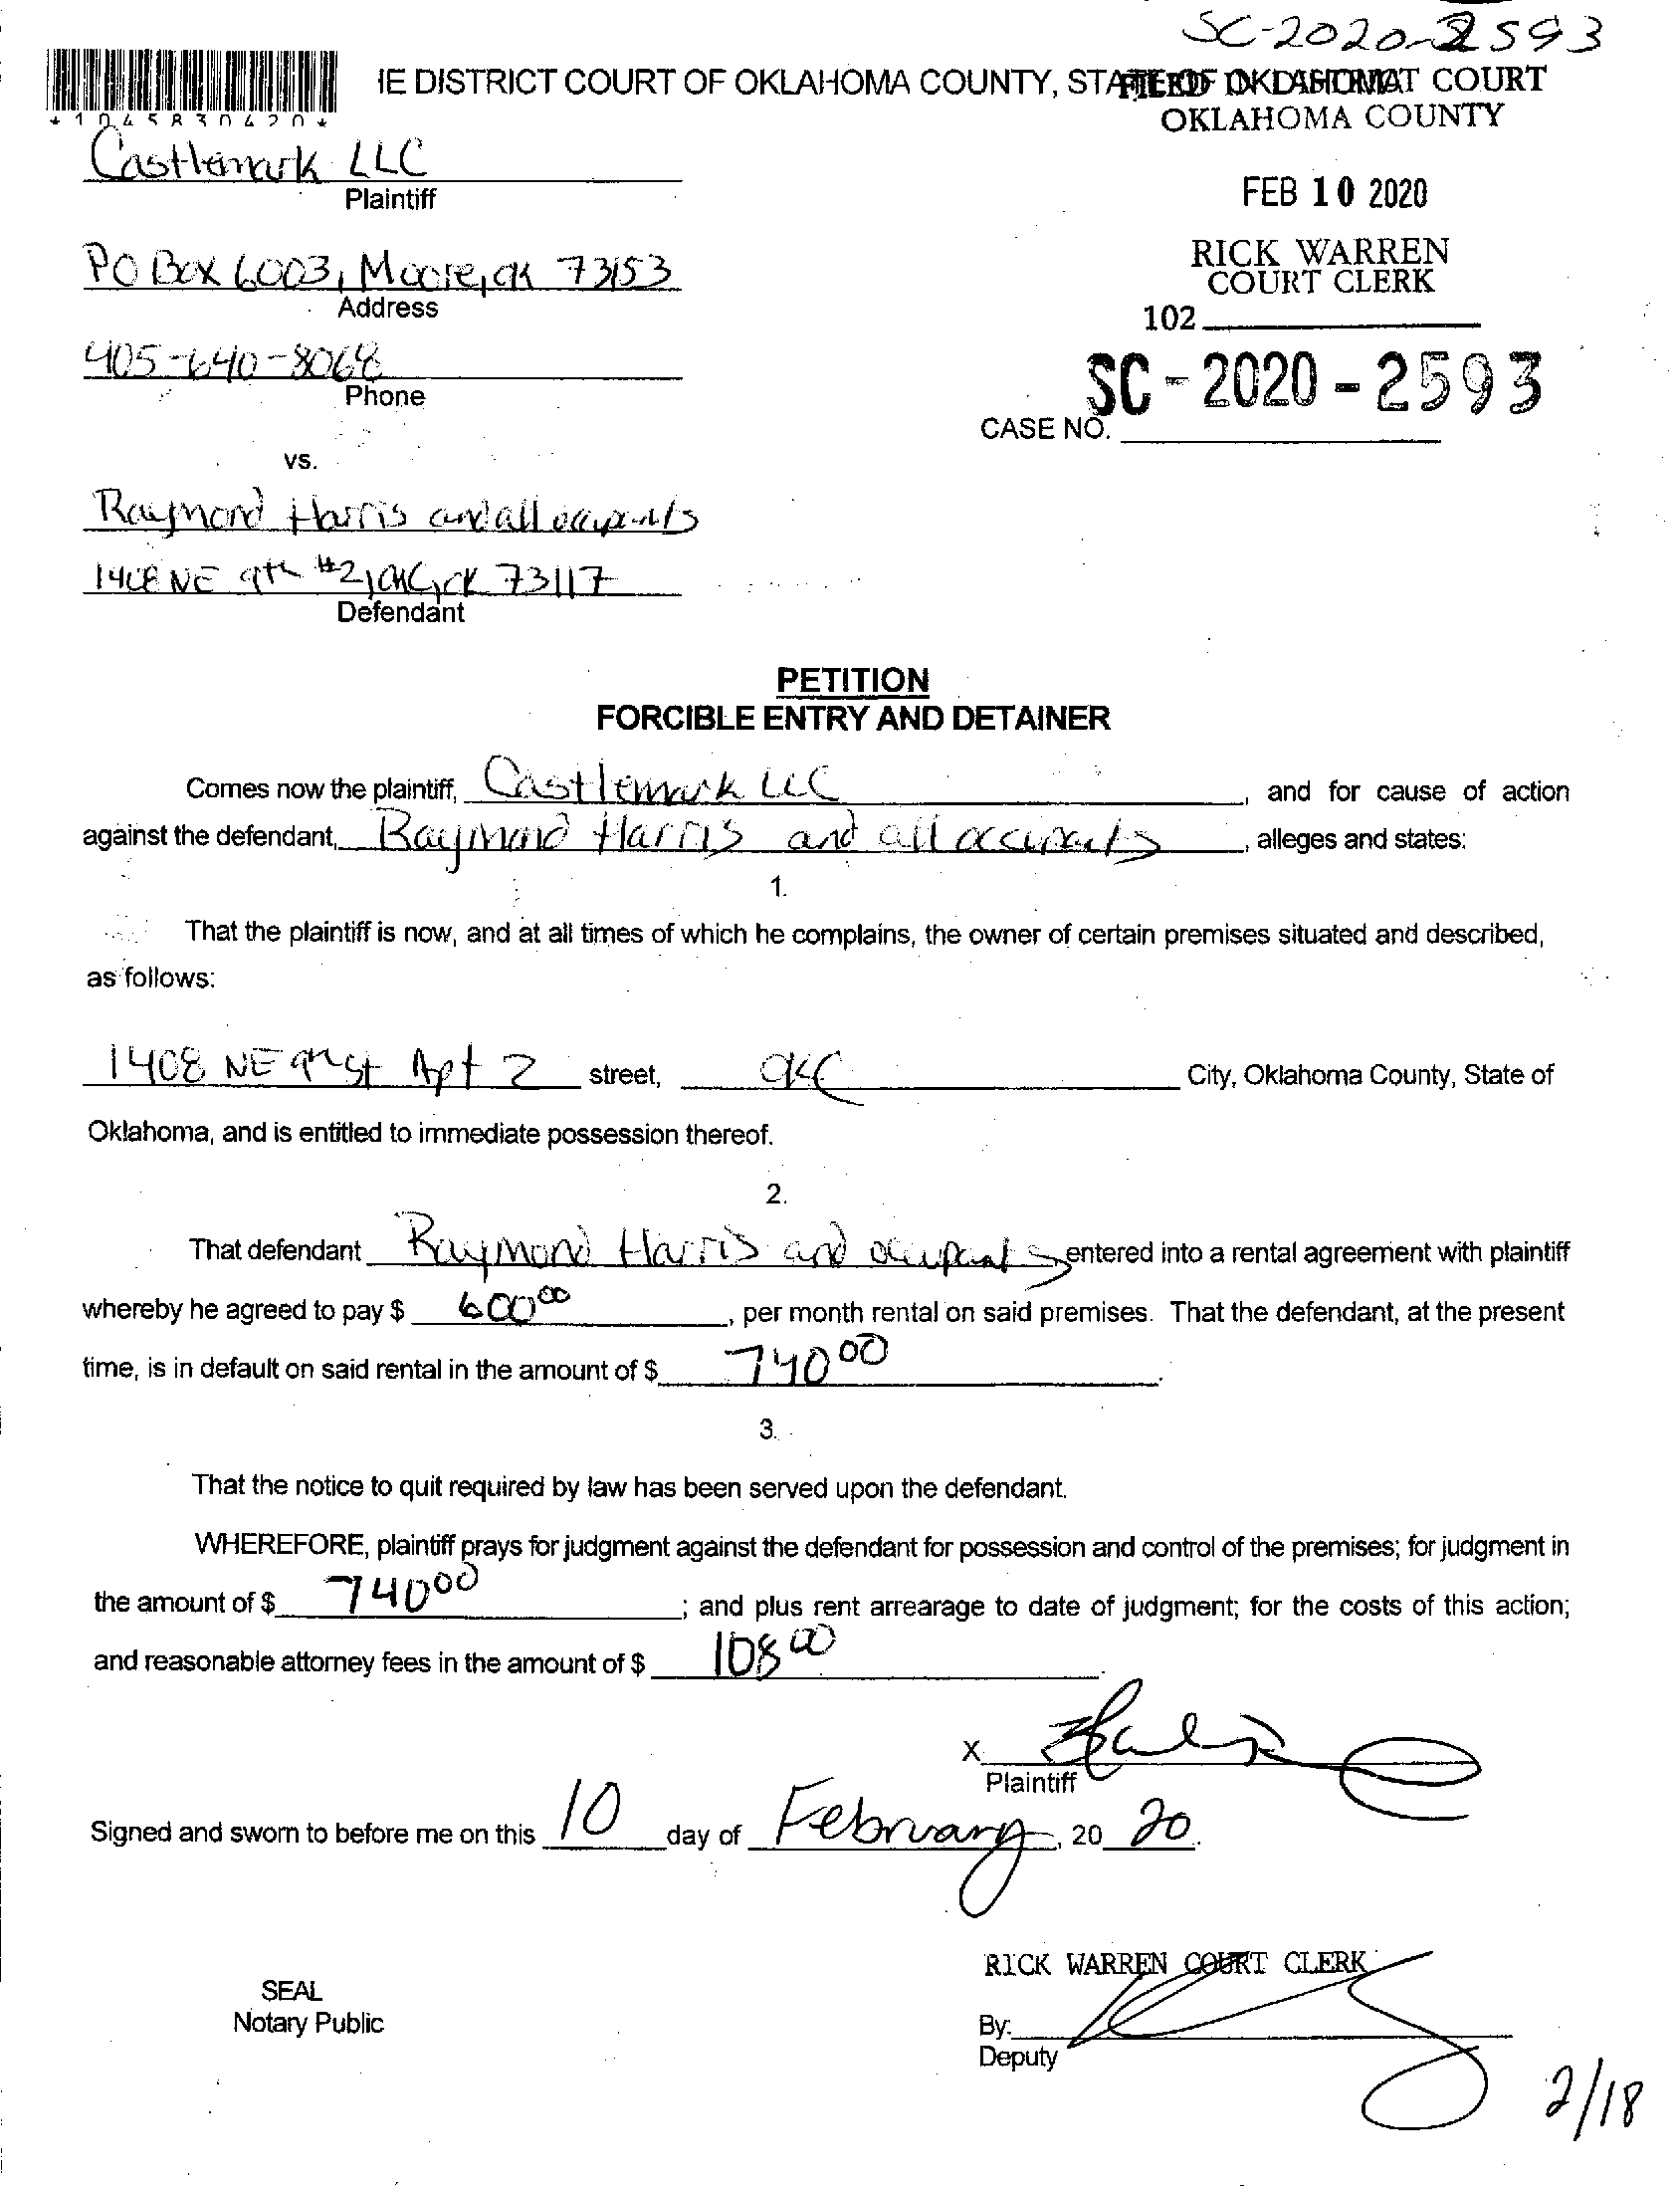 SC-2020-2593
IE DISTRICT COURT OF OKLAHOMA COUNTY, STATE OF OKLAHOMA
FILED IN DISTRICT COURT
OKLAHOMA COUNTY
*1045830420*
Castlemark LLC
Plaintiff
FEB 10 2020
RICK WARREN
COURT CLERK
102
PO Box 6003, Moore, OK 73153
Address
405-640-8068
Phone
SC-2020-2593
CASE NO.
vs.
Raymond Harris and all occupants
1408 NE 9th #2, OKC, OK 73117
Defendant
PETITION
FORCIBLE ENTRY AND DETAINER
Comes now the plaintiff, Castlemark LLC, and for cause of action
against the defendant, Raymond Harris and all occupants, alleges and states:
1.
That the plaintiff is now, and at all times of which he complains, the owner of certain premises situated and described,
as follows:
1408 NE 9th St Apt 2 street, OKC City, Oklahoma County, State of
Oklahoma, and is entitled to immediate possession thereof.
2.
That defendant Raymond Harris and occupants entered into a rental agreement with plaintiff
whereby he agreed to pay $ 600 00, per month rental on said premises. That the defendant, at the present
time, is in default on said rental in the amount of $ 740 00.
3.
That the notice to quit required by law has been served upon the defendant.
WHEREFORE, plaintiff prays for judgment against the defendant for possession and control of the premises; for judgment in
the amount of $ 740 00; and plus rent arrearage to date of judgment; for the costs of this action;
and reasonable attorney fees in the amount of $ 108 00.
X
Plaintiff
Signed and sworn to before me on this 10 day of February, 20 20.
RICK WARREN COURT CLERK
SEAL
Notary Public
By:
Deputy
2/18